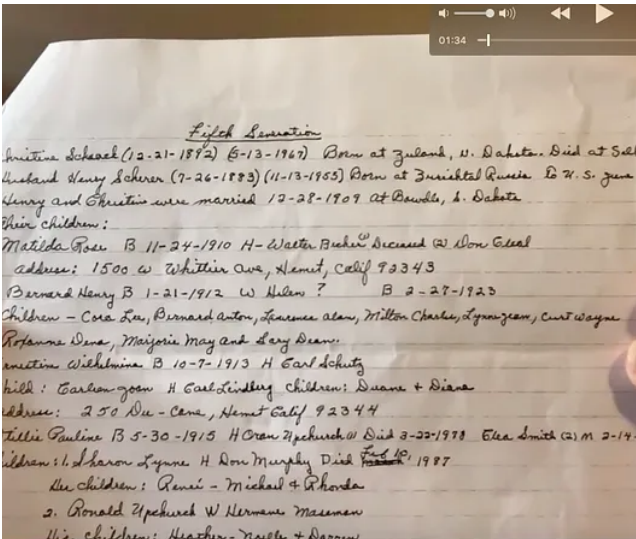 01:34
Fifth Generation
hristine Schaael (12-21-1892) (5-13-1967) Born at Zuland, N. Dakota. Died at
Husband Henry Scherer (7-26-1883) (11-13-1955) Born at Russia to U.S. June
Henry and Christine were married 12-28-1909 at Bowdle, S. Dakota
Their children:
Matilda Rose B 11-24-1910 H-Walter Becker (1) Deceased (2) Don
address: 1500 W Whittier Ave, Hemet, Calif 92343
Bernard Henry B 1-21-1912 W Helen ? B 2-27-1923
Children - Cora Lee, Bernard Anton, Laurence Alan, Milton Charles, Lynn Jean, Curt Wayne
Roxanne Dena, Marjorie May and Gary Dean.
rnestine Wilhelmina B 10-7-1913 H Earl Schutz
hild: Earleen H Earl Lindberg Children: Duane + Diana
ddress: 250 Du-Cane, Hemet Calif 92344
Tillie Pauline B 5-30-1915 H Oran Upchurch (1) Died 3-22-1978 Smith (2) M 2-14-
ildren: 1. Sharon Lynne H Don Murphy Died Feb 10, 1987
Her children: Reneé - Michael + Rhonda
2. Ronald Upchurch W Hermane
His children: Heather - Noelle + Darren